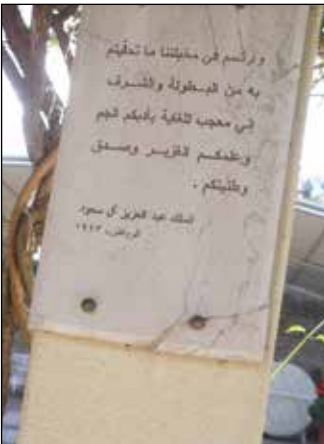 ورُسم في مخيلتنا ما تحليتم
به من البـطولة والشـرف
إني معجب للغاية بأدبكم الجم
وعلمكـم الغزيـر وصـدق
وطنيتكم .
الملك عبد العزيز آل سعود
الرياض، ١٩٢٣